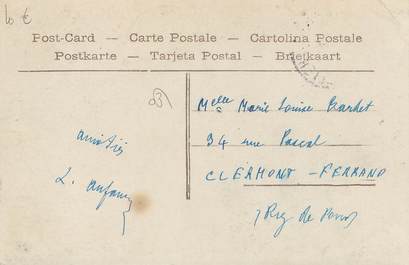 10 €
Post-Card — Carte Postale — Cartolina Postale
Postkarte — Tarjeta Postal — Briefkaart
Melle Marie Louise
94 rue Pascal
CLERMONT-FERRAND
Puy de Dome
amitiés
L.